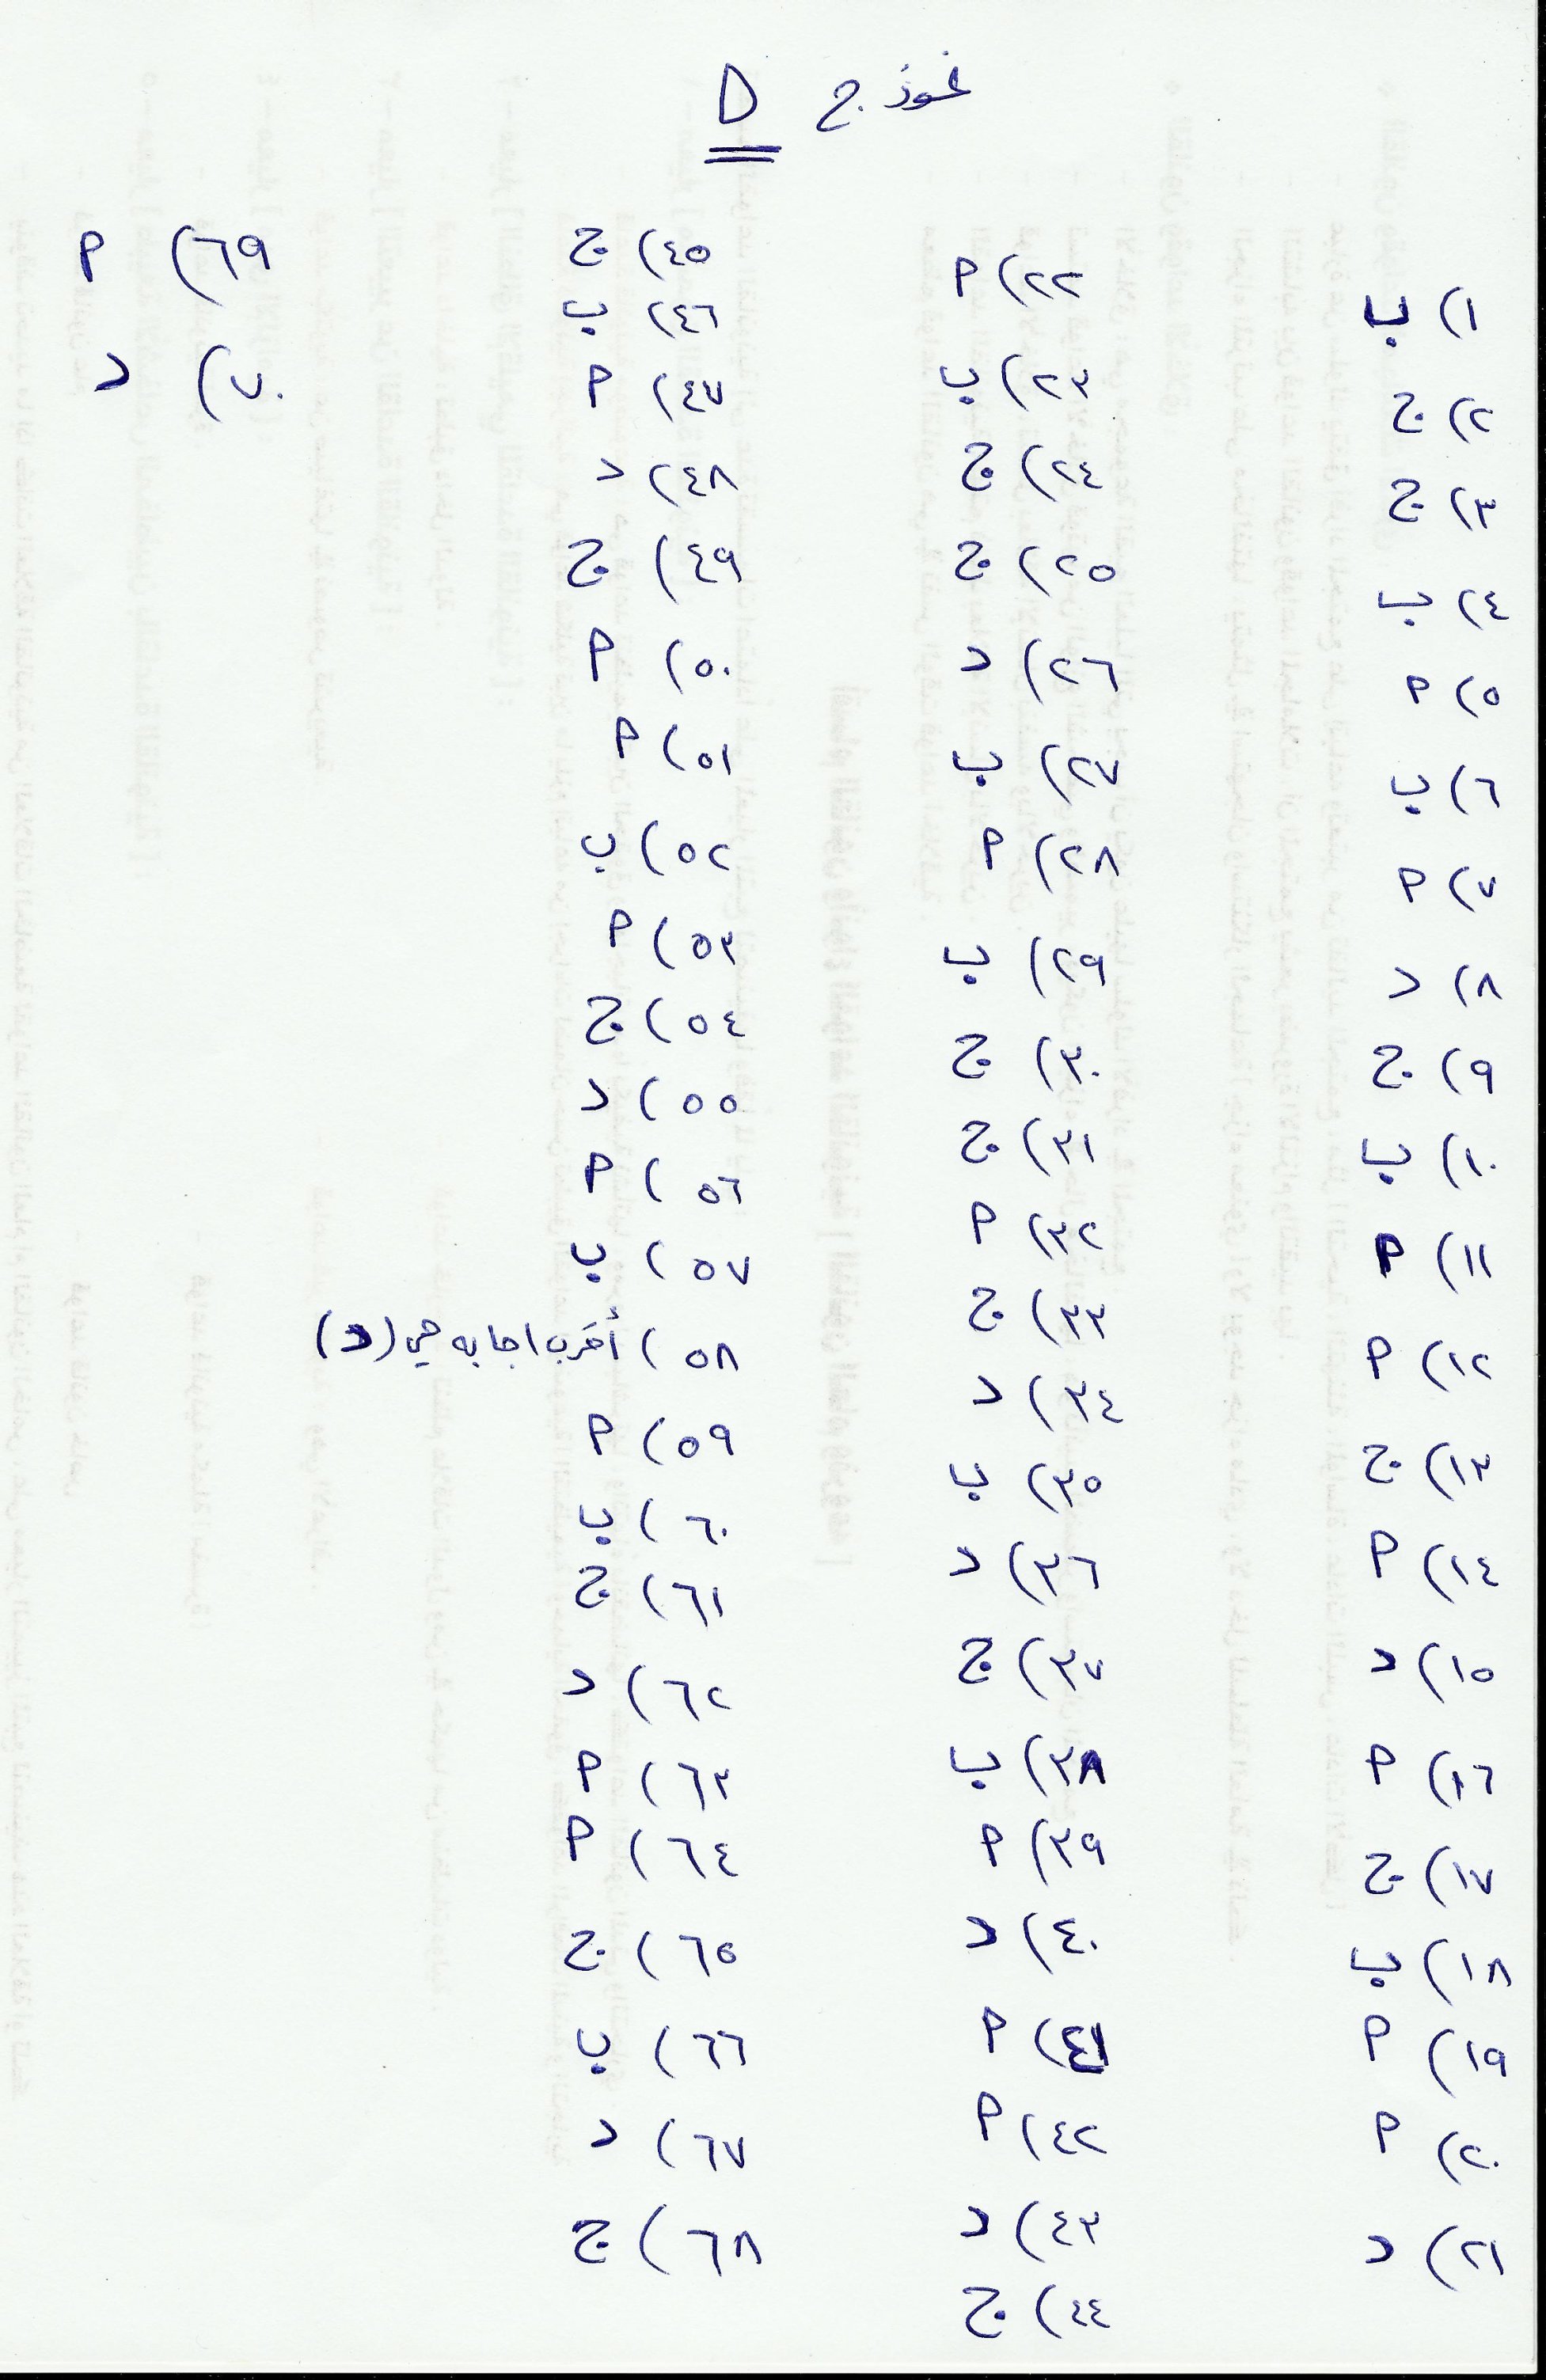 نموذج D
١) ب
٢) ج
٣) ج
٤) ب
٥) م
٦) ب
٧) م
٨) د
٩) ج
١٠) ب
١١) م
١٢) م
١٣) ج
١٤) م
١٥) د
١٦) م
١٧) ج
١٨) ب
١٩) م
٢٠) م
٢١) د
٢٢) م
٢٣) ب
٢٤) ج
٢٥) ج
٢٦) د
٢٧) ب
٢٨) م
٢٩) ب
٣٠) ج
٣١) ج
٣٢) م
٣٣) ج
٣٤) د
٣٥) ب
٣٦) د
٣٧) ج
٣٨) ب
٣٩) م
٤٠) د
٤١) م
٤٢) م
٤٣) د
٤٤) ج
٤٥) ج
٤٦) ب
٤٧) م
٤٨) د
٤٩) ج
٥٠) م
٥١) م
٥٢) ب
٥٣) م
٥٤) ج
٥٥) د
٥٦) م
٥٧) ب
٥٨) أقرب اجابه هي (د)
٥٩) م
٦٠) ب
٦١) ج
٦٢) د
٦٣) م
٦٤) م
٦٥) ج
٦٦) ب
٦٧) د
٦٨) ج
٦٩) م
٧٠) د